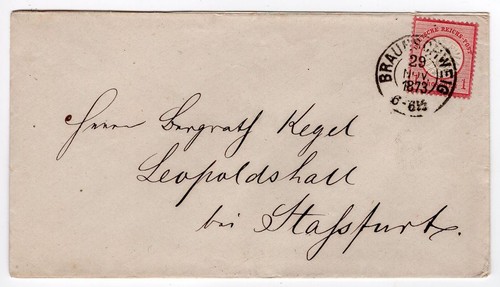 DEUTSCHE REICHS-POST
1
BRAUNSCHWEIG
29
NOV
1873
6-6½
Herrn Bergrath Kegel
Leopoldshall
bei Stassfurt.